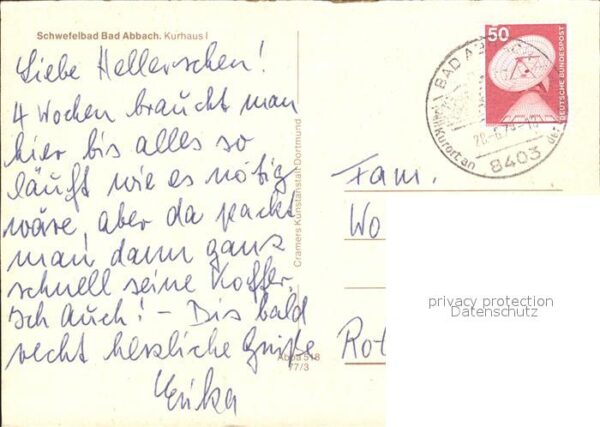 Schwefelbad Bad Abbach. Kurhaus I
Liebe Hellerschen!
4 Wochen braucht man
hier bis alles so
läuft wie es nötig
wäre, aber da packt
man dann ganz
schnell seine Koffer.
Ich Auch! – Bis bald
recht herzliche Grüße
Erika
Cramers Kunstanstalt Dortmund
Abba 918
77/3
50
DEUTSCHE BUNDESPOST
BAD AB
Heilkurort an der
8403
Fam.
Wo
Rot
privacy protection
Datenschutz